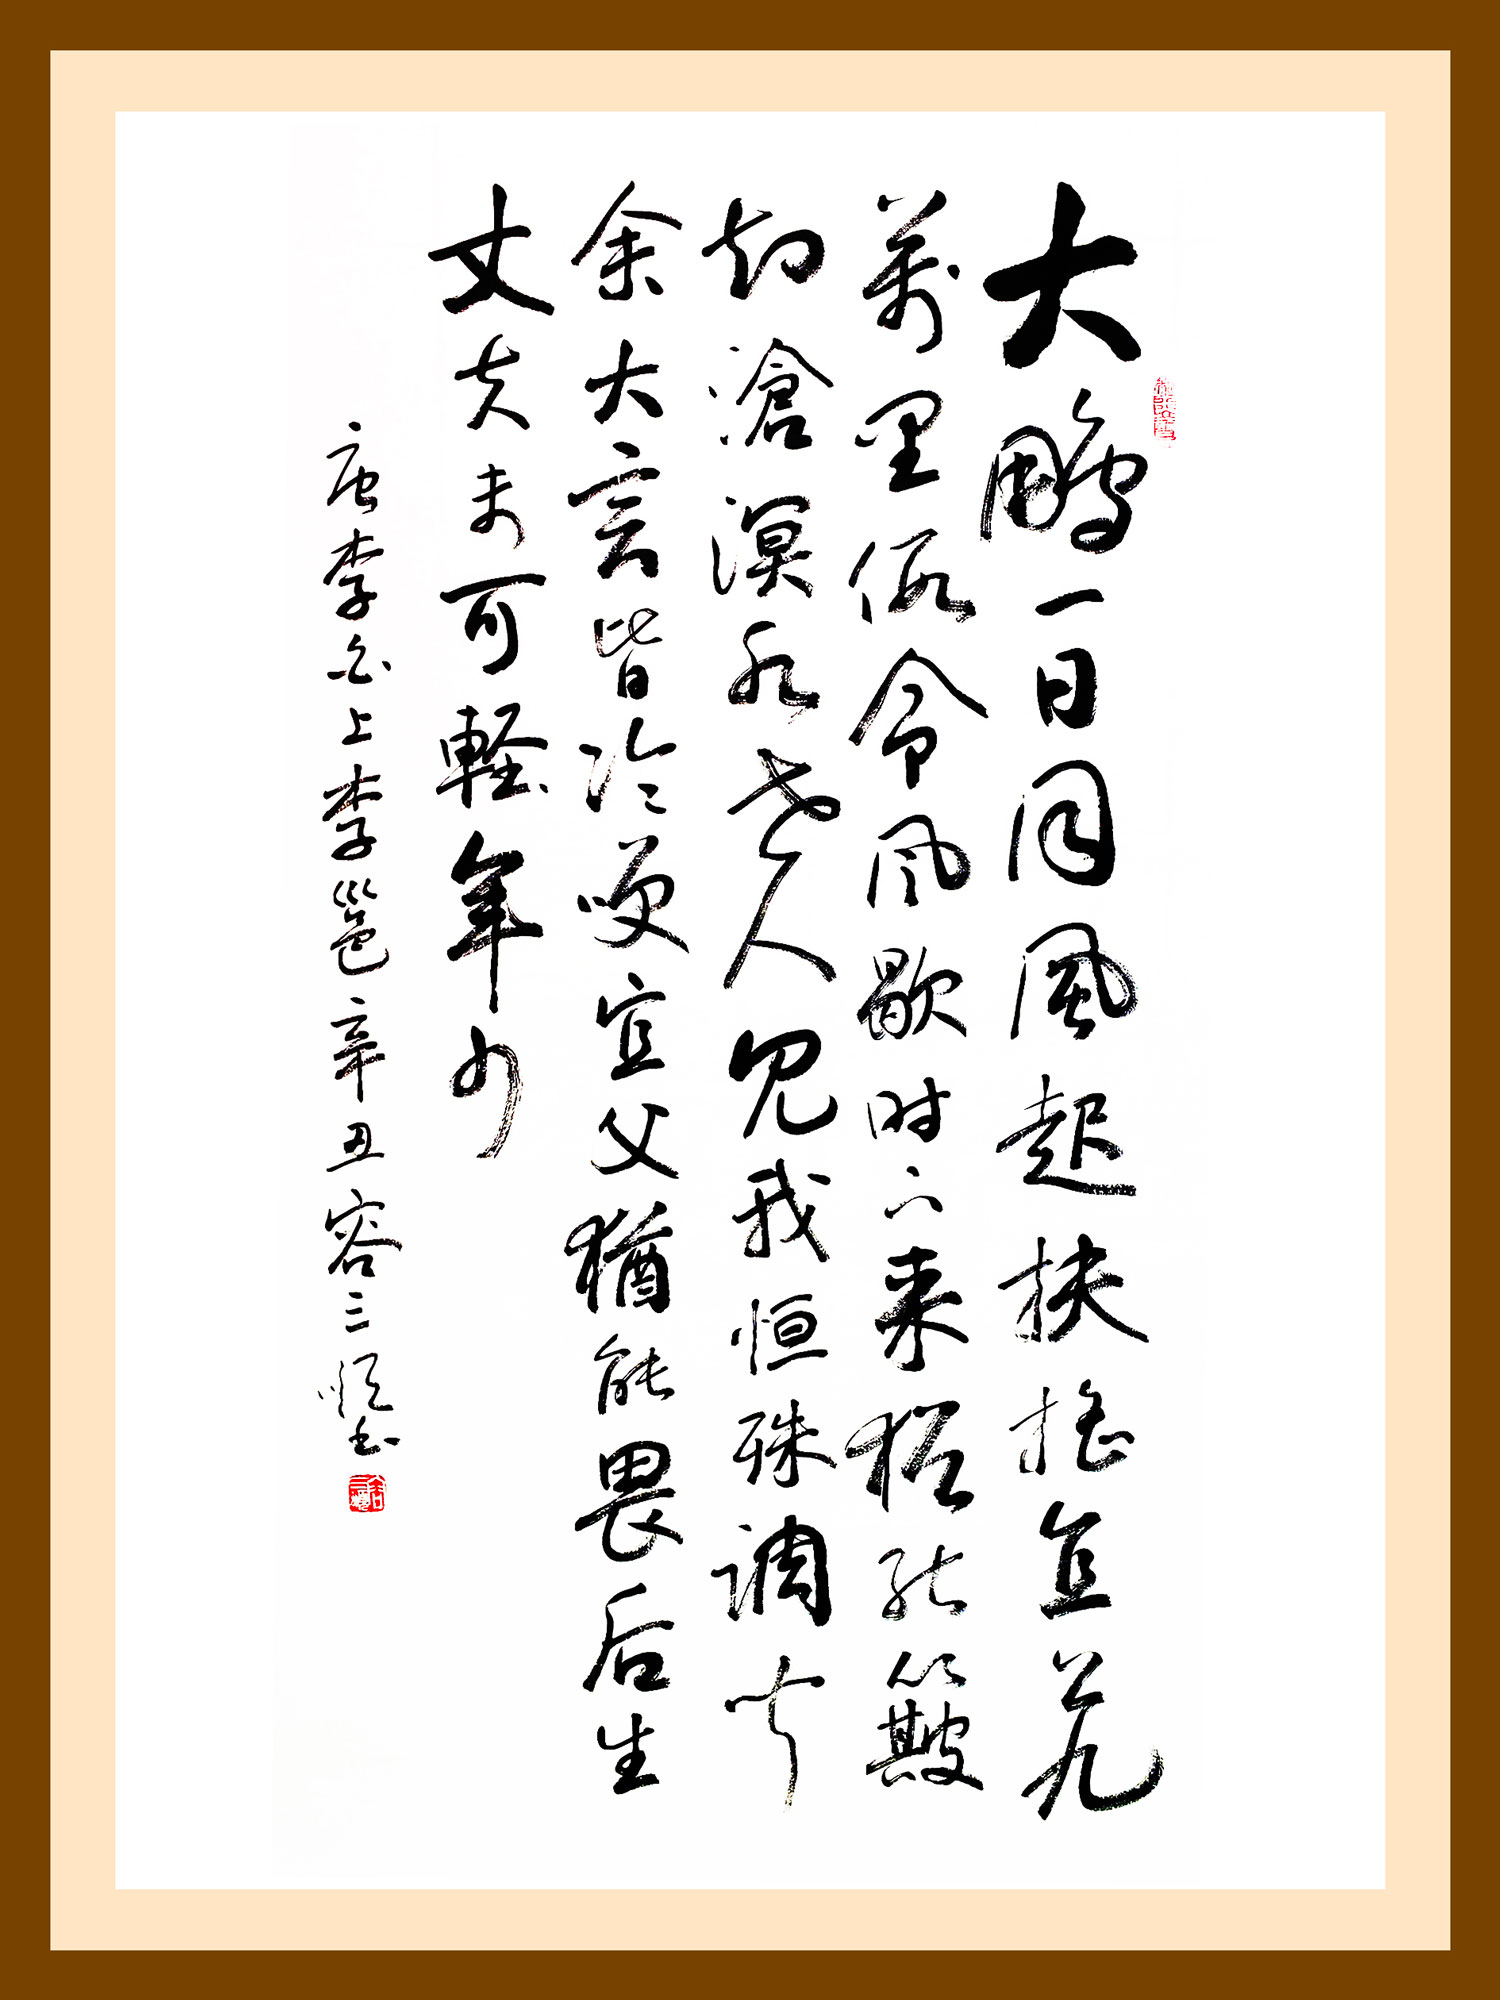 大鵬一日同風起扶搖直上九
萬里假令风歇时下来猶能簸
却滄溟水世人見我恒殊調闻
余大言皆冷咲宣父猶能畏后生
丈夫未可軽年少
唐李白上李邕辛丑容三书